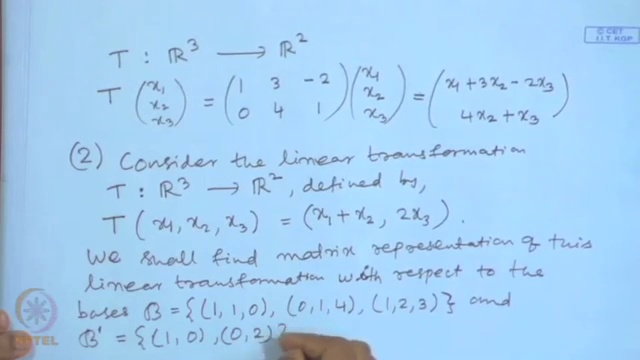 © CET
I.I.T. KGP
T : ℝ³ ⟶ ℝ²
T (x₁ x₂ x₃) = (1 3 -2 0 4 1) (x₁ x₂ x₃) = (x₁ + 3x₂ - 2x₃ 4x₂ + x₃)
(2) Consider the linear transformation
T : ℝ³ ⟶ ℝ², defined by,
T (x₁, x₂, x₃) = (x₁ + x₂, 2x₃).
We shall find matrix representation of this
linear transformation with respect to the
bases B = {(1, 1, 0), (0, 1, 4), (1, 2, 3)} and
B' = {(1, 0), (0, 2)}